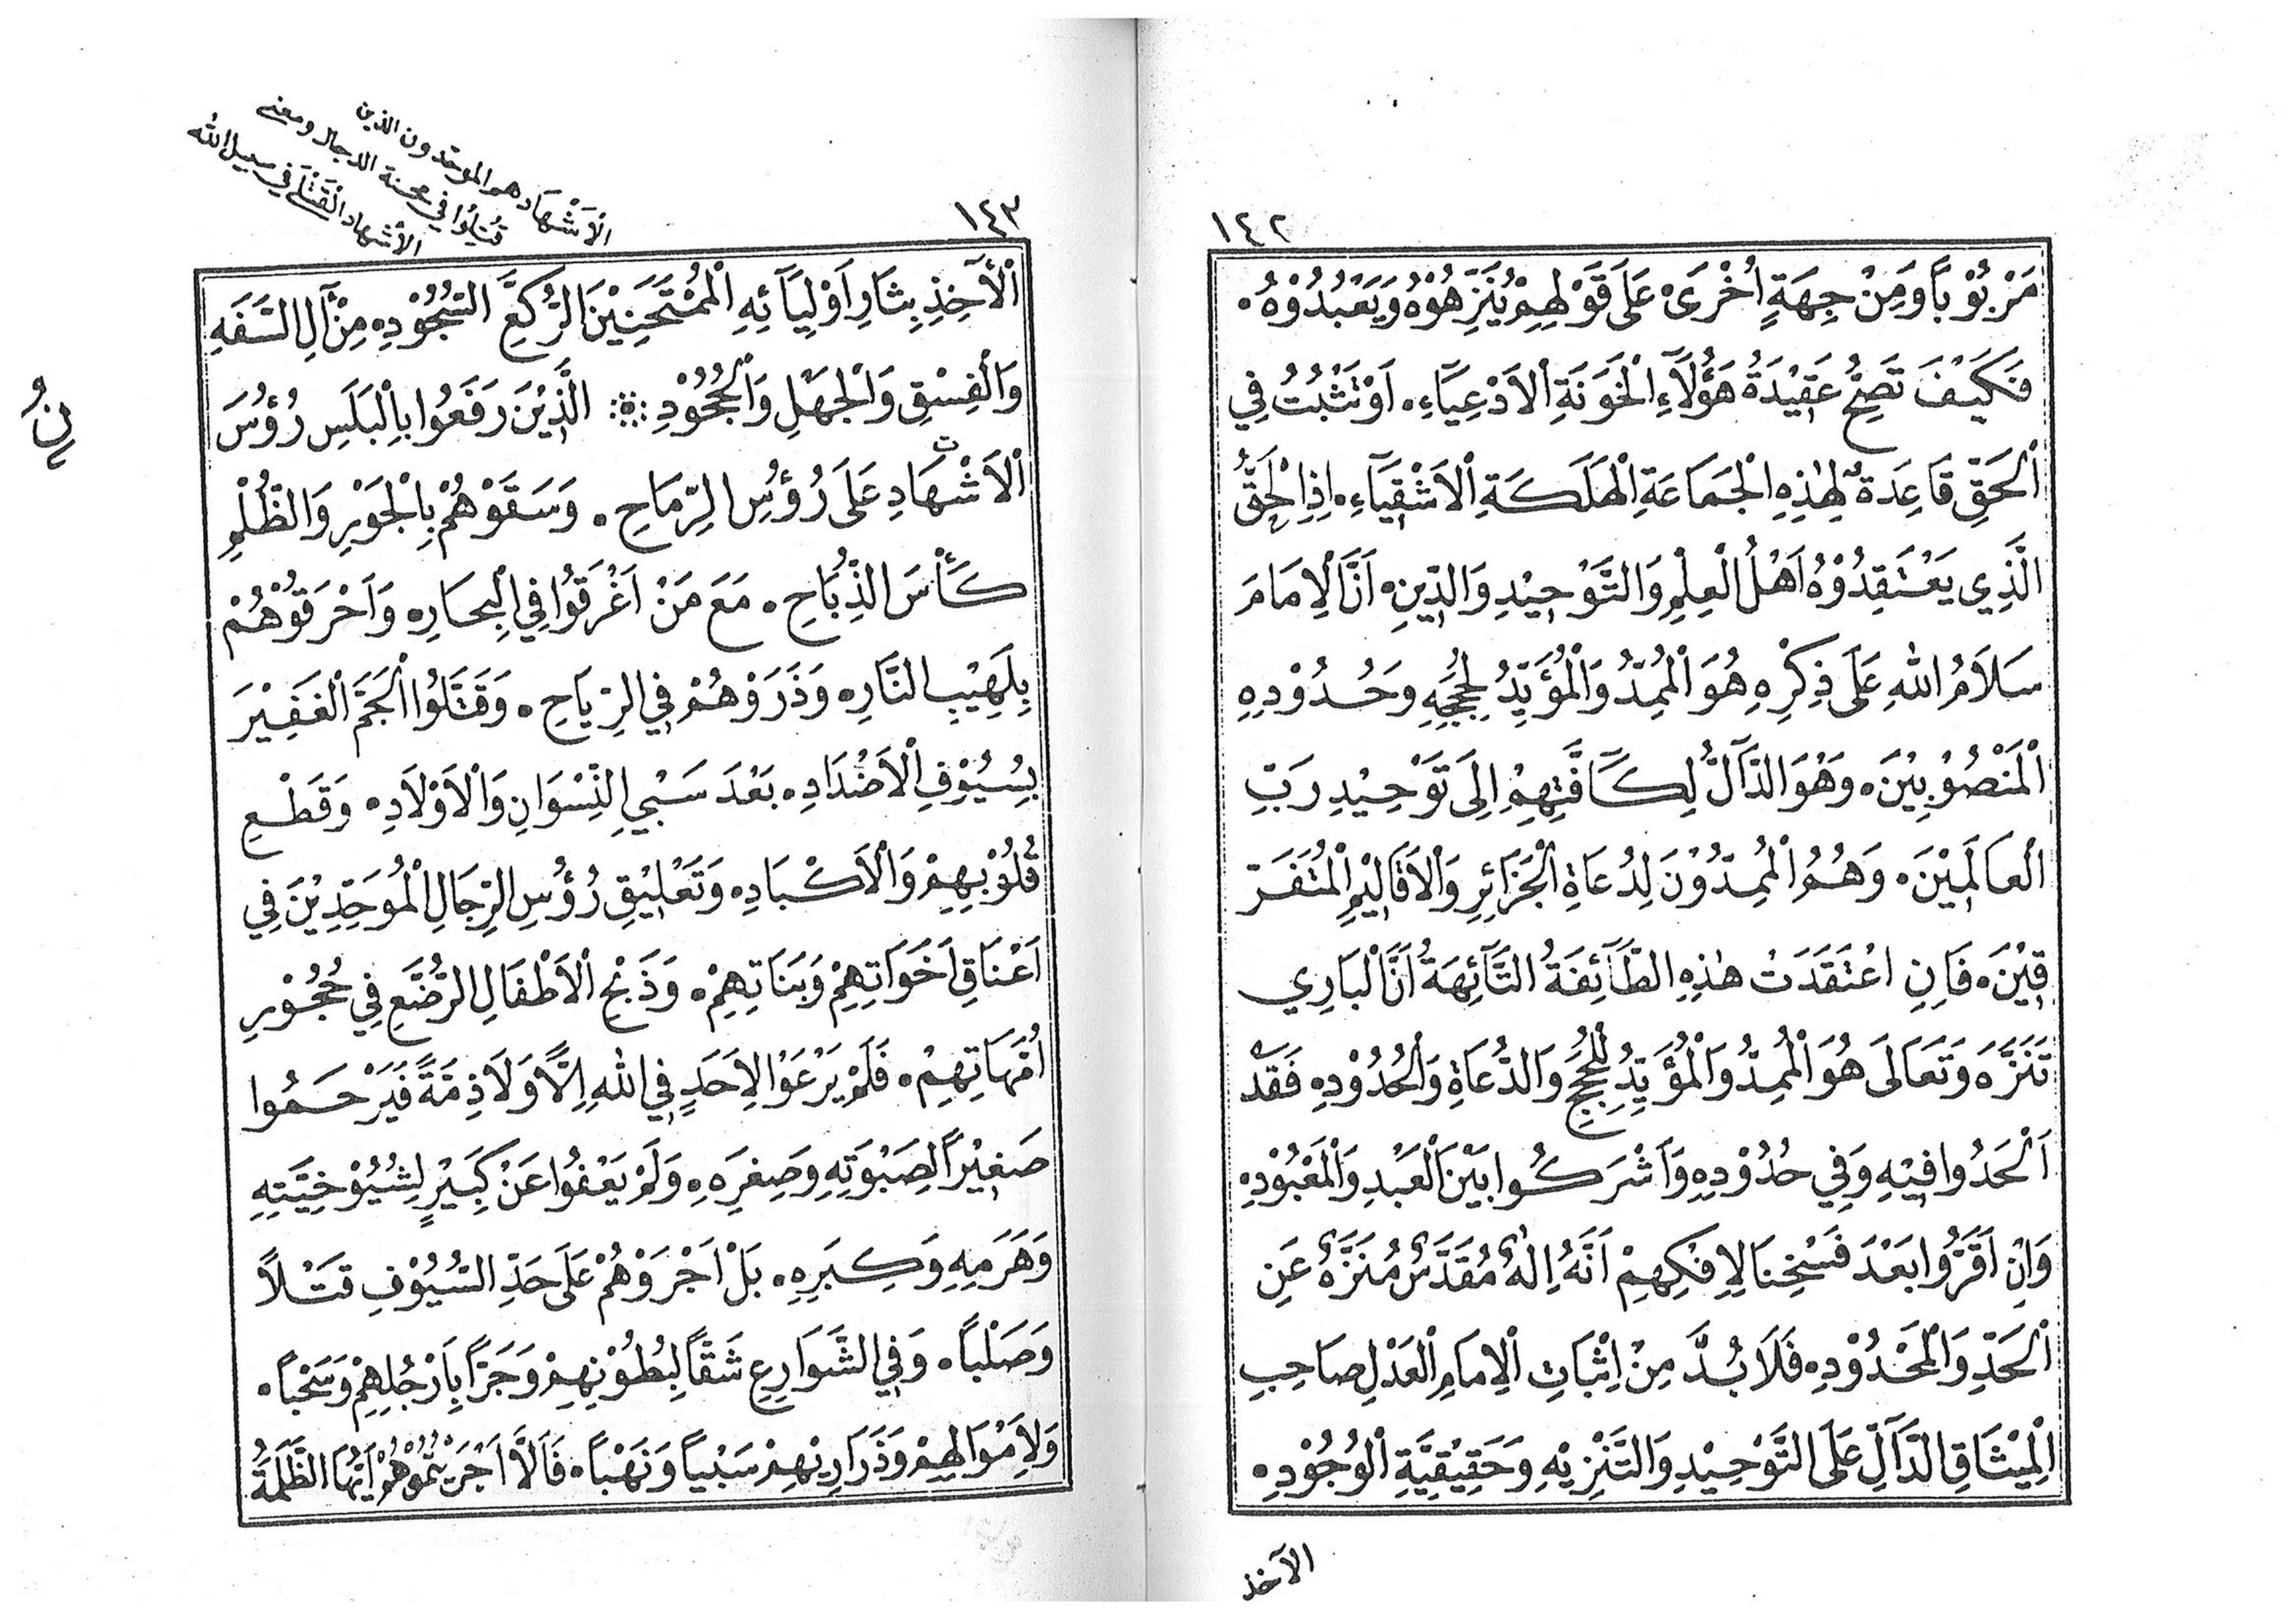 ١٤٢
مَرْبُوْبًا وَمِنْ جِهَةٍ اُخْرَىْ عَلَى قَوْلِهِمْ يُنَزِّهُوْهُ وَيَعْبُدُوْهُ۰
فَكَيْفَ تَصِحُّ عَقِيْدَةُ هَؤُلَآءِ الْخَوَنَةِ الْاَدْعِيَآءِ۰ اَوْ تَثْبُتُ فِي
الْحَقِّ قَاعِدَةٌ لِهٰذِهِ الْجَمَاعَةِ الْهَلَكَةِ الْاَشْقِيَآءِ۰ اِذِ الْحَقُّ
الَّذِي يَعْتَقِدُوْهُ اَهْلُ الْعِلْمِ وَالتَّوْحِيْدِ وَالدِّيْنِ۰ اَنَّ الْاِمَامَ
سَلَامُ اللهِ عَلَى ذِكْرِهِ هُوَ الْمُمِدُّ وَالْمُؤَيِّدُ لِحُجَجِهِ وَحُدُوْدِهِ
الْمَنْصُوْبِيْنَ۰ وَهُوَ الدَّآلُّ لِكَآفَّتِهِمْ اِلَى تَوْحِيْدِ رَبِّ
الْعَالَمِيْنَ۰ وَهُمُ الْمُمِدُّوْنَ لِدُعَاةِ الْجَزَآئِرِ وَالْاَقَالِيْمِ الْمُتَفَرِّ
قِيْنَ۰ فَاِنِ اعْتَقَدَتْ هٰذِهِ الطَّآئِفَةُ التَّآئِهَةُ اَنَّ الْبَارِي
تَنَزَّهَ وَتَعَالَى هُوَ الْمُمِدُّ وَالْمُؤَيِّدُ لِلْحُجَجِ وَالدُّعَاةِ وَالْحُدُوْدِ۰ فَقَدْ
اَلْحَدُوا فِيْهِ وَفِي حُدُوْدِهِ وَاَشْرَكُوا بَيْنَ الْعَبْدِ وَالْمَعْبُوْدِ۰
وَاِنْ اَقَرُّوا بَعْدَ فَسْخِنَا لِاِفْكِهِمْ اَنَّهُ اِلٰهٌ مُقَدَّسٌ مُنَزَّهٌ عَنِ
الْحَدِّ وَالْمَحْدُوْدِ۰ فَلَا بُدَّ مِنْ اِثْبَاتِ الْاِمَامِ الْعَدْلِ صَاحِبِ
الْمِيْثَاقِ الدَّآلِّ عَلَى التَّوْحِيْدِ وَالتَّنْزِيْهِ وَحَقِيْقِيَّةِ الْوُجُوْدِ۰
الآخذ
١٤٣
الْاَشْهَاد هم الموحدون الذين
قُتِلُوا في محنة الدجال ومعنى
الاشهاد القَتْلَى في سبيل الله
الْآخِذِ بِثَارِ اَوْلِيَآئِهِ الْمُمْتَحَنِيْنَ الرُّكَّعِ السُّجُوْدِ۰ مِنْ آلِ السَّفَهِ
وَالْفِسْقِ وَالْجَهْلِ وَالْجُحُوْدِ۰ الَّذِيْنَ رَفَعُوا بِالْبَلَسِ رُؤُسَ
نِ
الْاَشْهَادِ عَلَى رُؤُسِ الرِّمَاحِ۰ وَسَقَوْهُمْ بِالْجَوْرِ وَالظُّلْمِ
كَأْسَ الذُّبَاحِ۰ مَعَ مَنْ اَغْرَقُوا فِي الْبِحَارِ۰ وَاَحْرَقُوْهُمْ
بِلَهِيْبِ النَّارِ۰ وَذَرَوْهُمْ فِي الرِّيَاحِ۰ وَقَتَّلُوا الْجَمَّ الْغَفِيْرَ
بِسُيُوْفِ الْاَضْدَادِ۰ بَعْدَ سَبْيِ النِّسْوَانِ وَالْاَوْلَادِ۰ وَقَطْعِ
قُلُوْبِهِمْ وَالْاَكْبَادِ۰ وَتَعْلِيْقِ رُؤُسِ الرِّجَالِ الْمُوَحِّدِيْنَ فِي
اَعْنَاقِ اَخَوَاتِهِمْ وَبَنَاتِهِمْ۰ وَذَبْحِ الْاَطْفَالِ الرُّضَّعِ فِي حُجُوْرِ
اُمَّهَاتِهِمْ۰ فَلَمْ يَرْعَوْا لِاَحَدٍ فِي اللهِ اِلًّا وَلَا ذِمَّةً فَيَرْحَمُوا
صَغِيْرًا لِصَبْوَتِهِ وَصِغَرِهِ۰ وَلَمْ يَعْفُوا عَنْ كَبِيْرٍ لِشُيُوْخِيَّتِهِ
وَهَرَمِهِ وَكِبَرِهِ۰ بَلْ اَجْرَوْهُمْ عَلَى حَدِّ السُّيُوْفِ قَتْلًا
وَصَلْبًا۰ وَفِي الشَّوَارِعِ شَقًّا لِبُطُوْنِهِمْ وَجَرًّا بِاَرْجُلِهِمْ وَسَحْبًا۰
وَلِاَمْوَالِهِمْ وَذَرَارِيْهِمْ سَبْيًا وَنَهْبًا۰ فَاَلَّا اَجْرَيْتُمُوْهُمْ اَيُّهَا الظَّلَمَةُ